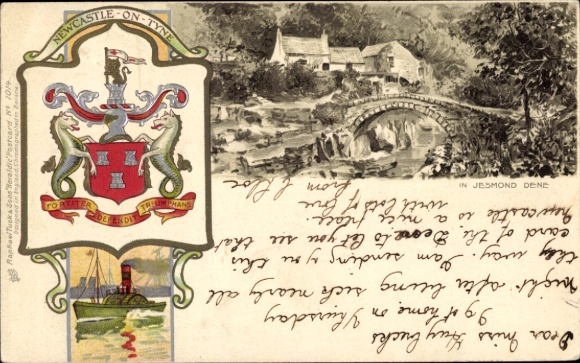 NEWCASTLE-ON-TYNE
FORTITER DEFENDIT TRIUMPHANS
Raphael Tuck & Sons' "Heraldic" Postcard Nº 1014.
Designed in England, Chromographed in Bavaria
IN JESMOND DENE
Dear Miss
of home on Thursday
night after being sick nearly all
the way. I am sending you this
card of the Dene to let you see that
Newcastle is a nice place.
with lots of love
from